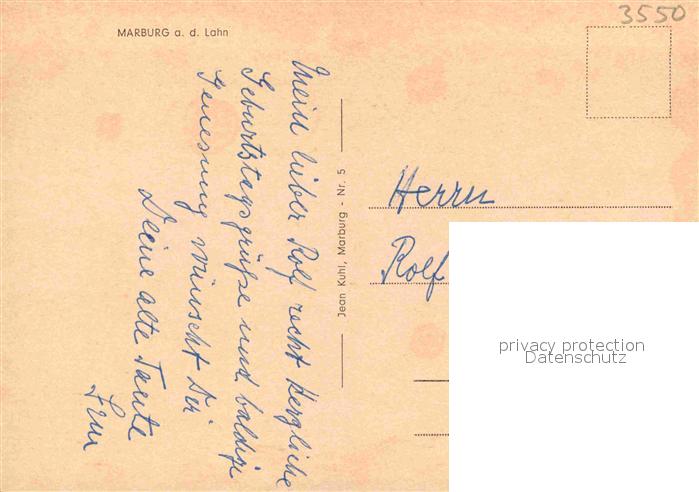 3550
MARBURG a. d. Lahn
Mein lieber Rolf recht herzliche
Geburtstagsgrüße und baldige
Genesung wünscht Dir
Deine alte Tante
Jean Kuhl, Marburg - Nr. 5
Herrn
Rolf
privacy protection
Datenschutz